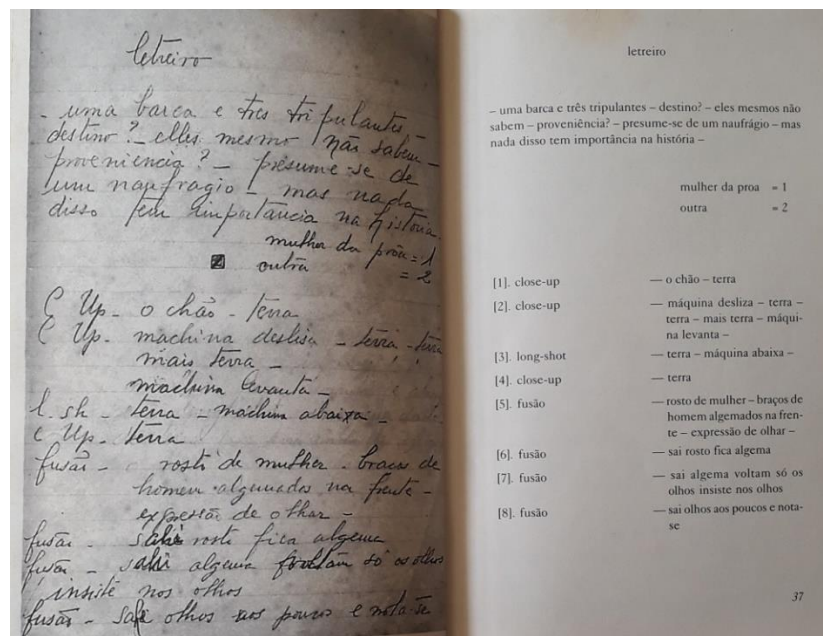 letreiro
- uma barca e tres tripulantes -
destino? - elles mesmo não sabem -
proveniencia? - presume-se de
um naufragio - mas nada
disso tem importancia na historia -
mulher da prôa = 1
outra = 2
C Up - o chão - terra
C Up - machina deslisa - terra - terra
mais terra -
machina levanta -
l. sh - terra - machina abaixa -
C Up - terra
fusão - rosto de mulher - braços de
homem algemados na frente -
expressão de olhar -
fusão - sahi rosto fica algema
fusão - sahi algema voltam só os olhos
insiste nos olhos
fusão - sahe olhos aos poucos e nota-se
letreiro
– uma barca e três tripulantes – destino? – eles mesmos não
sabem – proveniência? – presume-se de um naufrágio – mas
nada disso tem importância na história –
mulher da proa = 1
outra = 2
[1]. close-up — o chão – terra
[2]. close-up — máquina desliza – terra –
terra – mais terra – máqui-
na levanta –
[3]. long-shot — terra – máquina abaixa –
[4]. close-up — terra
[5]. fusão — rosto de mulher – braços de
homem algemados na fren-
te – expressão de olhar –
[6]. fusão — sai rosto fica algema
[7]. fusão — sai algema voltam só os
olhos insiste nos olhos
[8]. fusão — sai olhos aos poucos e nota-
se
37